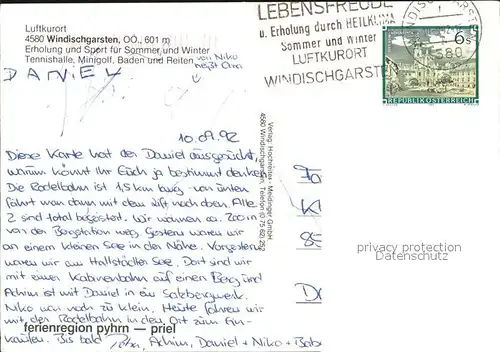 Luftkurort
4580 Windischgarsten, OÖ., 601 m
Erholung und Sport für Sommer und Winter
Tennishalle, Minigolf, Baden und Reiten
von Niko
heißt Oma
DANIEL
LEBENSFREUDE
u. Erholung durch HEILKLIMA
Sommer und Winter
LUFTKURORT
WINDISCHGARSTEN
6 S
REPUBLIK ÖSTERREICH
10.09.92
Diese Karte hat der Daniel ausgesucht,
warum könnt Ihr Euch ja bestimmt denken.
Die Rodelbahn ist 1,5 km lang - von unten
fährt man dann mit dem Lift nach oben. Alle
2 sind total begeistert. Wir wohnen ca. 200 m
von der Bergstation weg. Gestern waren wir
an einem kleinen See in der Nähe. Vorgestern
waren wir am Hallstädter See. Dort sind wir
mit einer Kabinenbahn auf einen Berg und
Achim ist mit Daniel in ein Salzbergwerk.
Niko war noch zu klein. Heute fahren wir
mit der Rodelbahn in den Ort zum Ein-
kaufen. Bis bald
Achim, Daniel + Niko + Bab
ferienregion pyhrn — priel
Verlag: Hochreiter + Meidinger GmbH
4580 Windischgarsten, Telefon (0 75 62) 252
privacy protection
Datenschutz